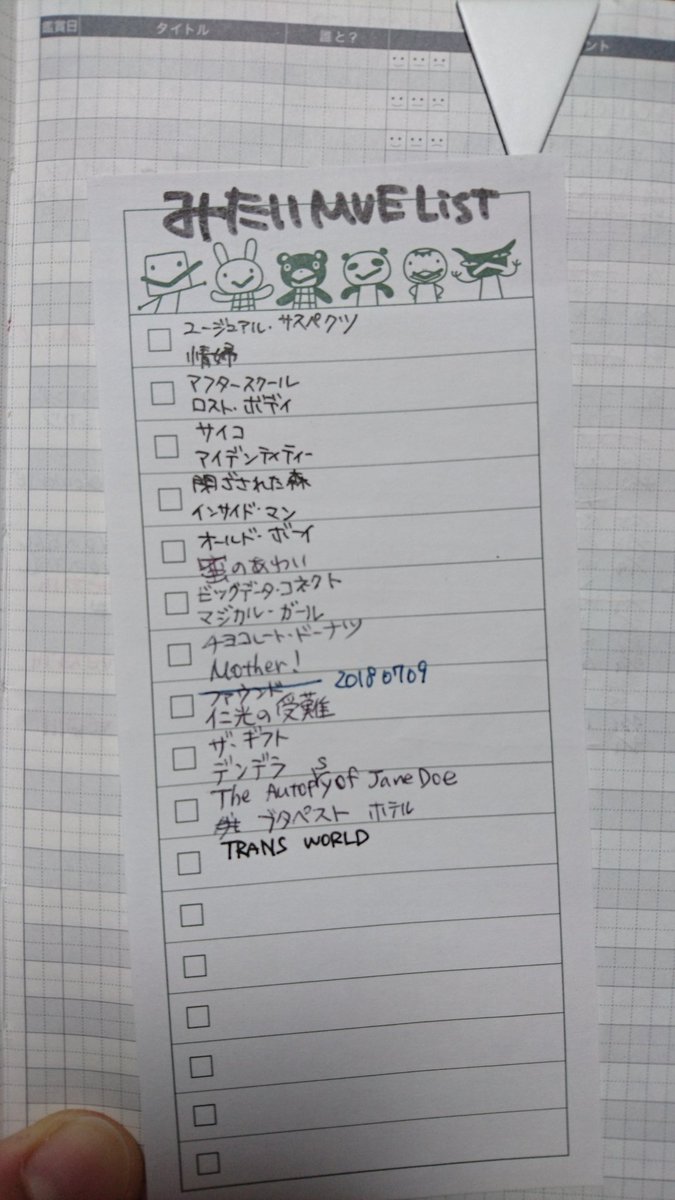 鑑賞日 タイトル 誰と? ント
みたい MVE LiST
ユージュアル・サスペクツ
情婦
アフタースクール
ロスト・ボディ
サイコ
アイデンティティー
閉ざされた森
インサイド・マン
オールド・ボーイ
蜜のあわい
ビッグデータ・コネクト
マジカル・ガール
チョコレート・ドーナツ
Mother!
ファウンド 20180709
仁光の受難
ザ・ギフト
デンデラ
The Autopsy of Jane Doe
ブタペスト ホテル
TRANS WORLD